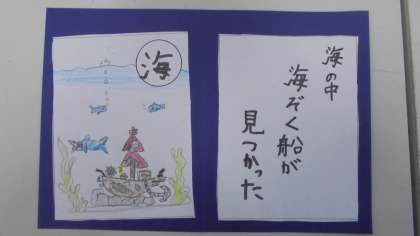 海
海の中
海ぞく船が
見つかった